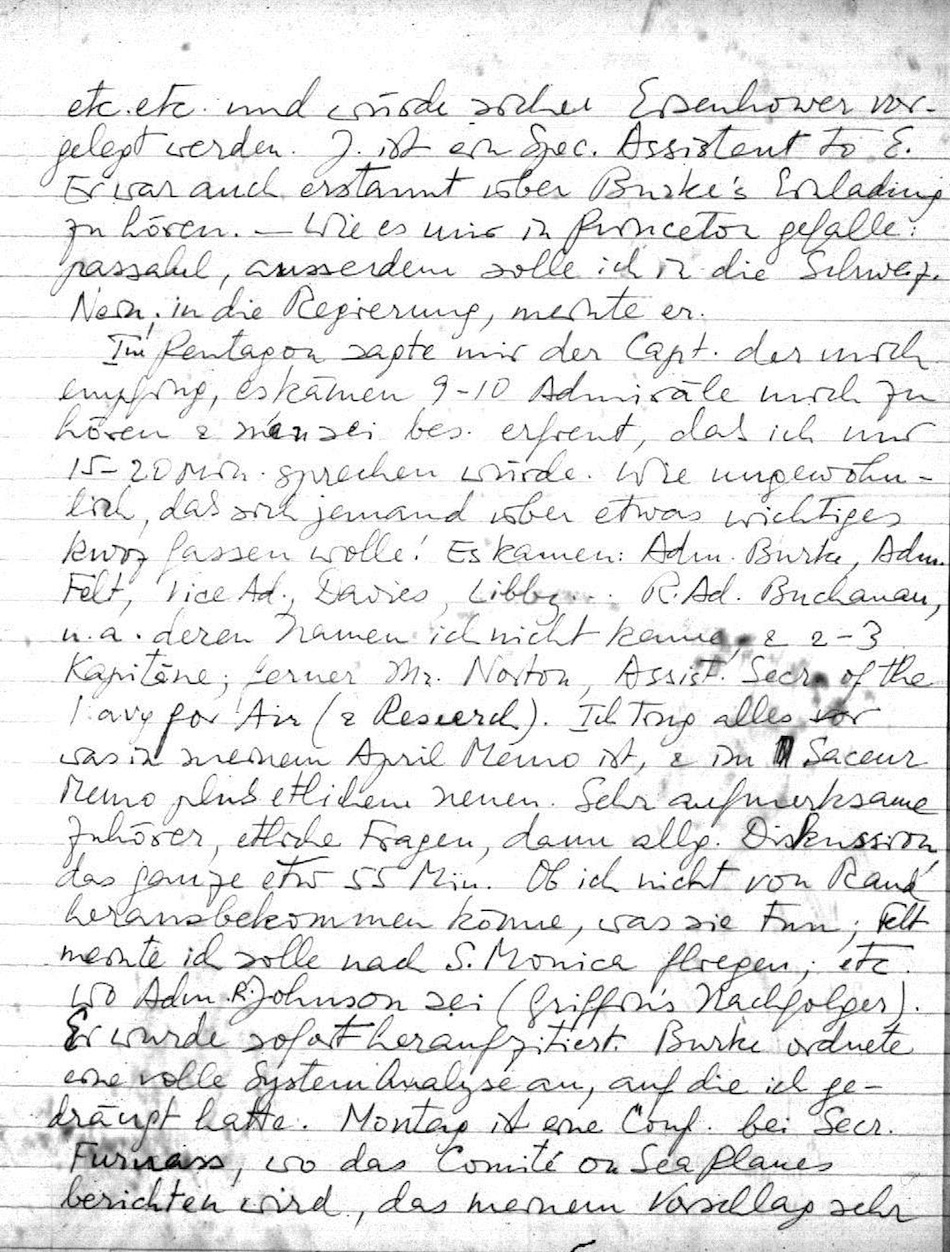 etc. etc. und würde sicher Eisenhower vor-
gelegt werden. J. ist ein Spec. Assistent to E.
Er war auch erstaunt über Burke's Einladung
zu hören. — Wie es mir in Princeton gefalle:
passabel, ausserdem solle ich in die Schweiz.
Nein, in die Regierung, meinte er.
Im Pentagon sagte mir der Capt. der mich
empfing, es kämen 9-10 Admiräle mich zu
hören & man sei bes. erfreut, daß ich nur
15-20 Min. sprechen würde. Wie ungewöhn-
lich, daß sich jemand über etwas wichtiges
kurz fassen wolle! Es kamen: Adm. Burke, Adm.
Felt, Vice Ad., Davies, Libby... R.Ad. Buchanan,
u.a. deren Namen ich nicht kenne, & 2-3
Kapitäne; ferner Mr. Norton, Assist. Secr. of the
Navy for Air (& Research). Ich trug alles vor
was in meinem April Memo ist, & im Saceur
Memo plus etlichem neuen. Sehr aufmerksame
Zuhörer, etliche Fragen, dann allg. Diskussion,
das ganze etw 55 Min. Ob ich nicht von Rand
herausbekommen könne, was sie tun; Felt
meinte ich solle nach S. Monica fliegen; etc.
wo Adm. R. Johnson sei (Griffin's Nachfolger).
Er wurde sofort heraufzitiert. Burke ordnete
eine volle System Analyse an, auf die ich ge-
drängt hatte. Montag ist eine Conf. bei Secr.
Furnass, wo das Comité on Sea Planes
berichten wird, das meinem Vorschlag sehr